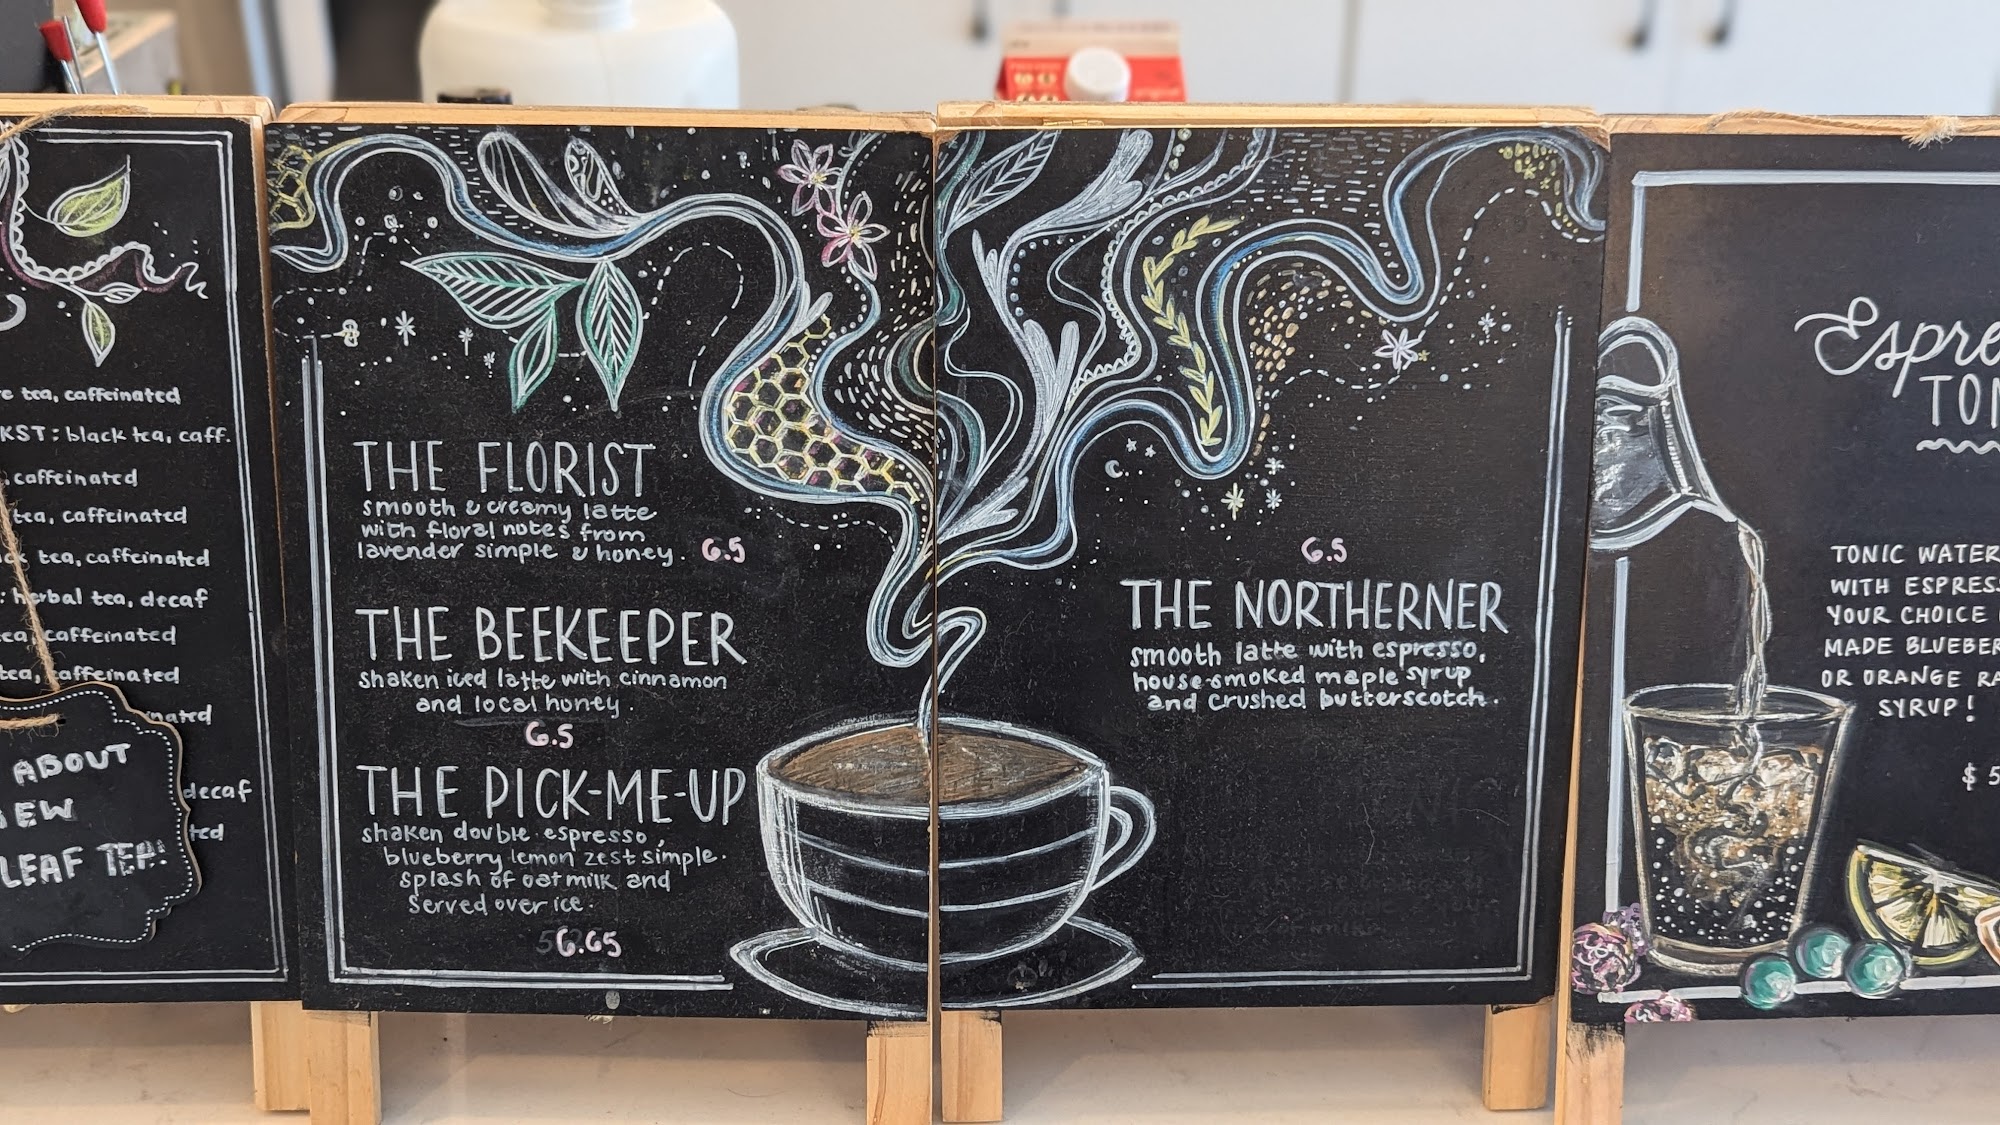 tea, caffeinated
KST: black tea, caff.
caffeinated
tea, caffeinated
tea, caffeinated
: herbal tea, decaf
caffeinated
tea, caffeinated
decaf
ABOUT
LEAF TEA!
THE FLORIST
smooth & creamy latte
with floral notes from
lavender simple & honey. 6.5
THE BEEKEEPER
shaken iced latte with cinnamon
and local honey.
6.5
THE PICK-ME-UP
shaken double espresso,
blueberry lemon zest simple.
splash of oatmilk and
served over ice.
6.65
6.5
THE NORTHERNER
smooth latte with espresso,
house-smoked maple syrup
and crushed butterscotch.
Espre
TON
TONIC WATER
WITH ESPRESS
YOUR CHOICE
MADE BLUEBER
OR ORANGE RA
SYRUP!
$5